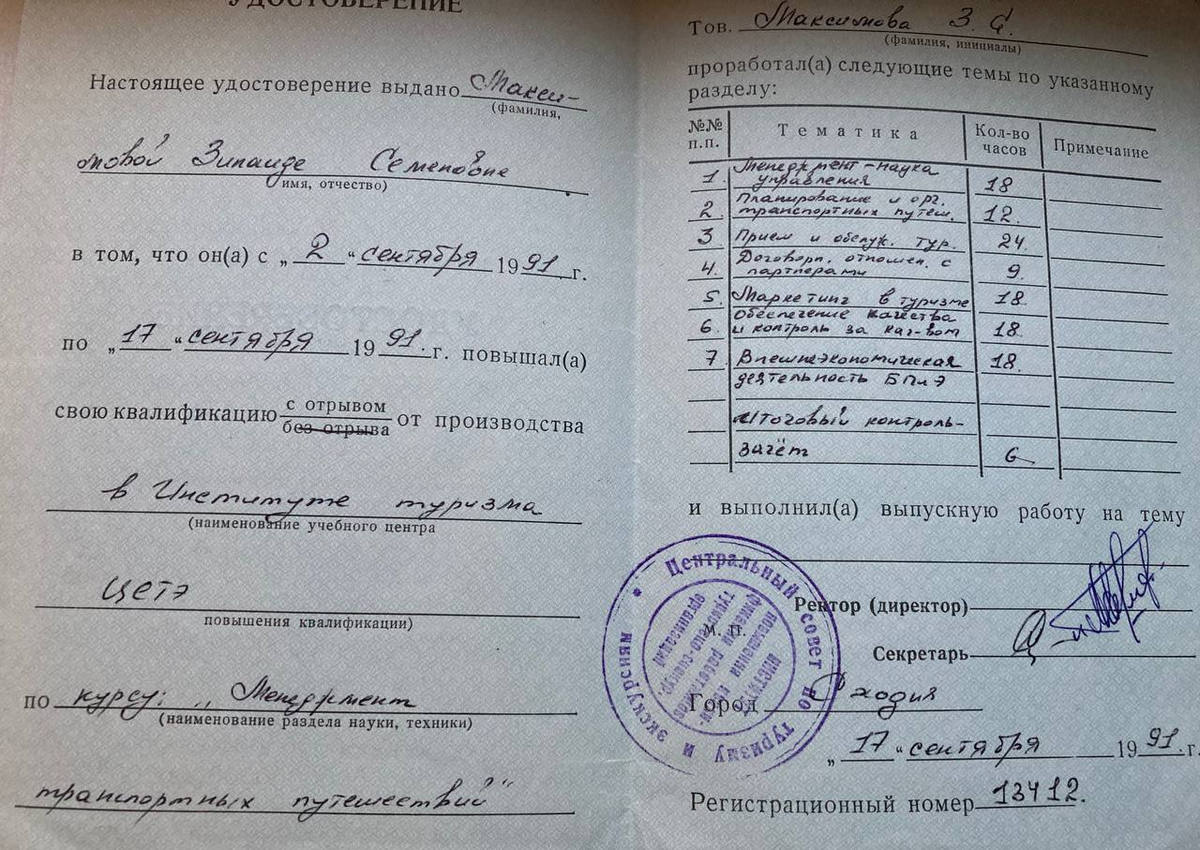 УДОСТОВЕРЕНИЕ
Настоящее удостоверение выдано Макси-
(фамилия,
мовой Зинаиде Семеновне
имя, отчество)
в том, что он(а) с „2“ сентября 1991 г.
по „17“ сентября 1991. г. повышал(а)
свою квалификацию с отрывом от производства
без отрыва
в Институте туризма
(наименование учебного центра
ЦСТЭ
повышения квалификации)
по курсу: „Менеджмент
(наименование раздела науки, техники)
транспортных путешествий“
Тов. Максимова З. С.
(фамилия, инициалы)
проработал(а) следующие темы по указанному
разделу:
№№ п.п. Тематика Кол-во часов Примечание
1. Менеджмент-наука
управления 18
2. Планирование и орг.
транспортных путеш. 12.
3 Прием и обслуж. тур. 24.
4. Договорн. отношен. с
партнерами 9.
5. Маркетинг в туризме 18.
6. Обеспечение качества
и контроль за кач-вом 18.
7. Внешнеэкономическая 18.
деятельность БПиЭ
Итоговый контроль-
зачёт 6
и выполнил(а) выпускную работу на тему
Ректор (директор)
М. П.
Секретарь
Город Сходня
„17“ сентября 1991. г.
Регистрационный номер 13412.
Центральный совет по туризму и экскурсиям
институт
повышения квали-
фикации работников
туристско-экскур.
организаций